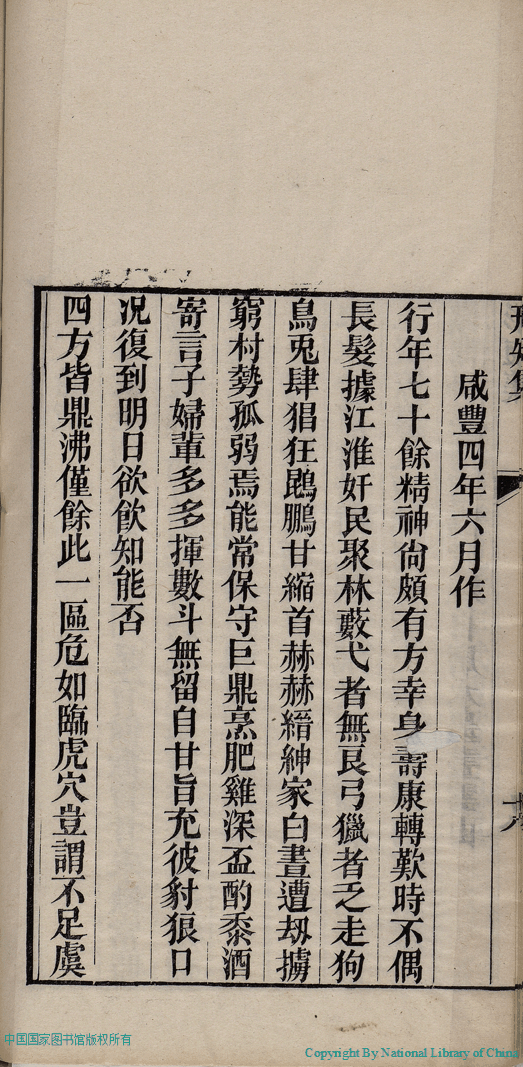 咸豐四年六月作
行年七十餘精神尙頗有方幸身壽康轉歎時不偶
長髮據江淮奸民聚林藪弋者無良弓獵者乏走狗
鳥兎肆猖狂鵾鵬甘縮首赫赫縉紳家白晝遭刼擄
窮村勢孤弱焉能常保守巨鼎烹肥雞深盃酌黍酒
寄言子婦輩多多揮數斗無留自甘旨充彼豺狼口
况復到明日欲飮知能否
四方皆鼎沸僅餘此一區危如臨虎穴豈謂不足虞
中国国家图书馆版权所有
Copyright By National Library of China